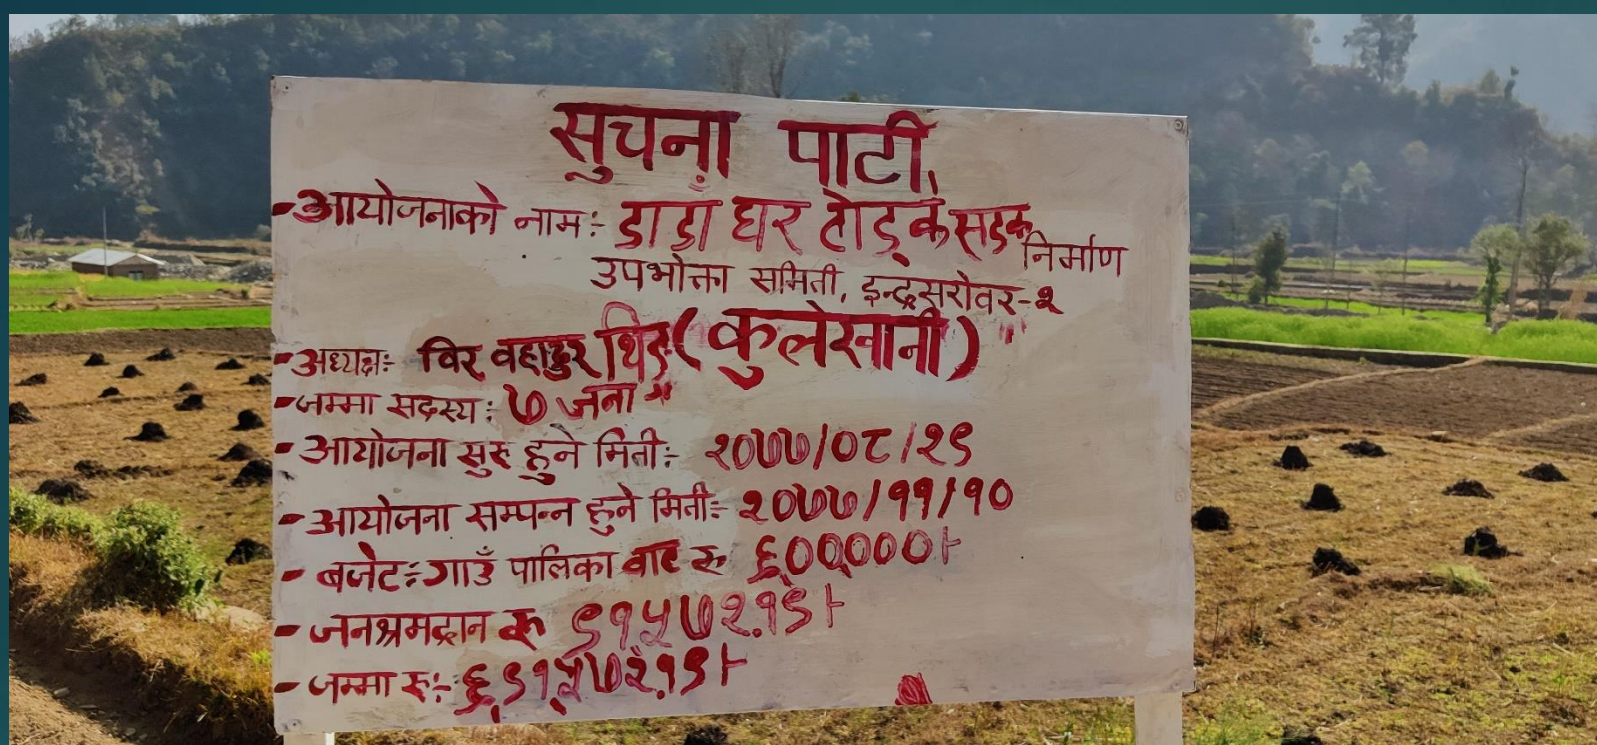 सुचना पाटी
-आयोजनाको नाम:- डाडाँ घर टोड्के सडक निर्माण
उपभोक्ता समिती, इन्द्रसरोवर-२
-अध्यक्ष:- विर वहादुर थिङ (कुलेखानी)
-जम्मा सदस्य:- ७ जना
-आयोजना सुरु हुने मिती:- २०७७/०८/२९
-आयोजना सम्पन्न हुने मिती:- २०७७/११/१०
- बजेट:- गाउँ पालिका वाट रु ६०००००।-
- जनश्रमदान रु ९१५७२.१९।-
- जम्मा रु:- ६९१५७२.१९।-